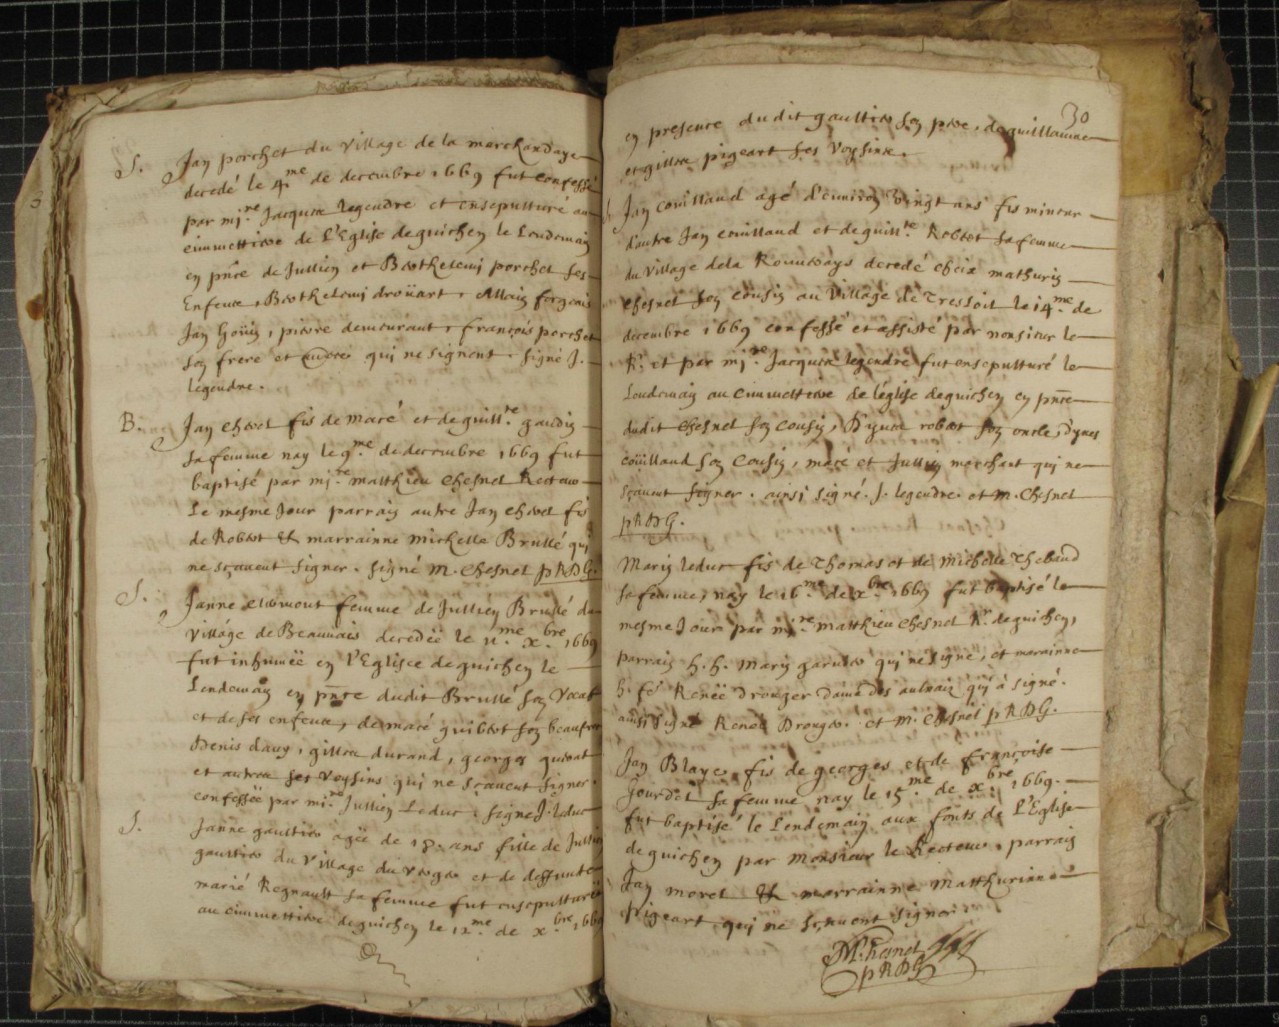 S. Jan porchet du village de la marchandaye
decedé le 4.me de decembre 1669 fut confessé
par mi.re Jacques legendre et ensepulturé au
cimmettiere de l'Eglise de guichen le Lendemain
en pñce de Jullien et Berthelemi porchet ses
Enfens, Berthelemi droüart, Allain
Jan hoüix, pierre demeurant, françois porchet
son frere et autres qui ne signent. Signé J.
legendre.
B. Jan fis de macé et de guill.te gaudin
sa femme nay le 9.me de decembre 1669 fut
baptisé par mi.re matthieu Chesnel Recteur
Le mesme Jour parrain autre Jan fis
de Robert & marrainne michelle Brullé qui
ne sçavent signer. Signé M. Chesnel pRDG.
S. Janne femme de Jullien Brullé du
village de Beauvais decedëe le 11.me x.bre 1669
fut inhumëe en l'Eglise de guichen le
Lendemain en pñce dudit Brullé son
et de ses enfens, de macé guibert son beaufrere
Denis davy, gilles durand, georges
et autres ses voysins qui ne sçavent signer.
confessëe par mi.re Jullien Leduc. signé J. Leduc
S. Janne gaultier agëe de 18. ans fille de Jullien
gaultier du village du verger et de deffunte
marie Regnault sa femme fut ensepulturëe
au cimmettiere de guichen le 12.me de x.bre 1669
30
en presence dudit gaultier son pere, de guillaume
et gilles pigeart ses voysins.
Jan coüillaud agé d'environ vingt ans fis mineur
d'autre Jan couillaud et de guill.te Robert sa femme
du village de la decedé cheix mathurin
Chesnel son cousin au village de Tressoit le 14.me de
decembre 1669 confessé et assisté par monsieur le
R.r et par mi.re Jacques legendre fut ensepulturé le
Lendemain au cimmettiere de l'église de guichen en pñce
dudit Chesnel son cousin, robert son oncle,
coüillaud son cousin, macé et Jullien merchant qui ne
sçavent signer. ainsi signé. J. legendre et M. Chesnel
pRDG.
Marin leduc fis de Thomas et de Michelle Thebaud
sa femme, nay le 16.me de x.bre 1669 fut baptisé le
mesme Jour par mi.re matthieu Chesnel R.r de guichen,
parrain h. h. Marin qui ne signe, et marainne
h. fe. Renëe Drouger dame des qui à signé.
ainsi signé Renée Drouger. et M. Chesnel pRDG.
Jan Blaye fis de georges et de françoise
Jourdet sa femme nay le 15.me de x.bre 1669.
fut baptisé le Lendemain aux fonts de L'Eglise
de guichen par Monsieur le Recteur. parrain
Jan morel & marrainne Matthurinne
Pigeart, qui ne sçavent signer.
M. Chesnel
pRDG